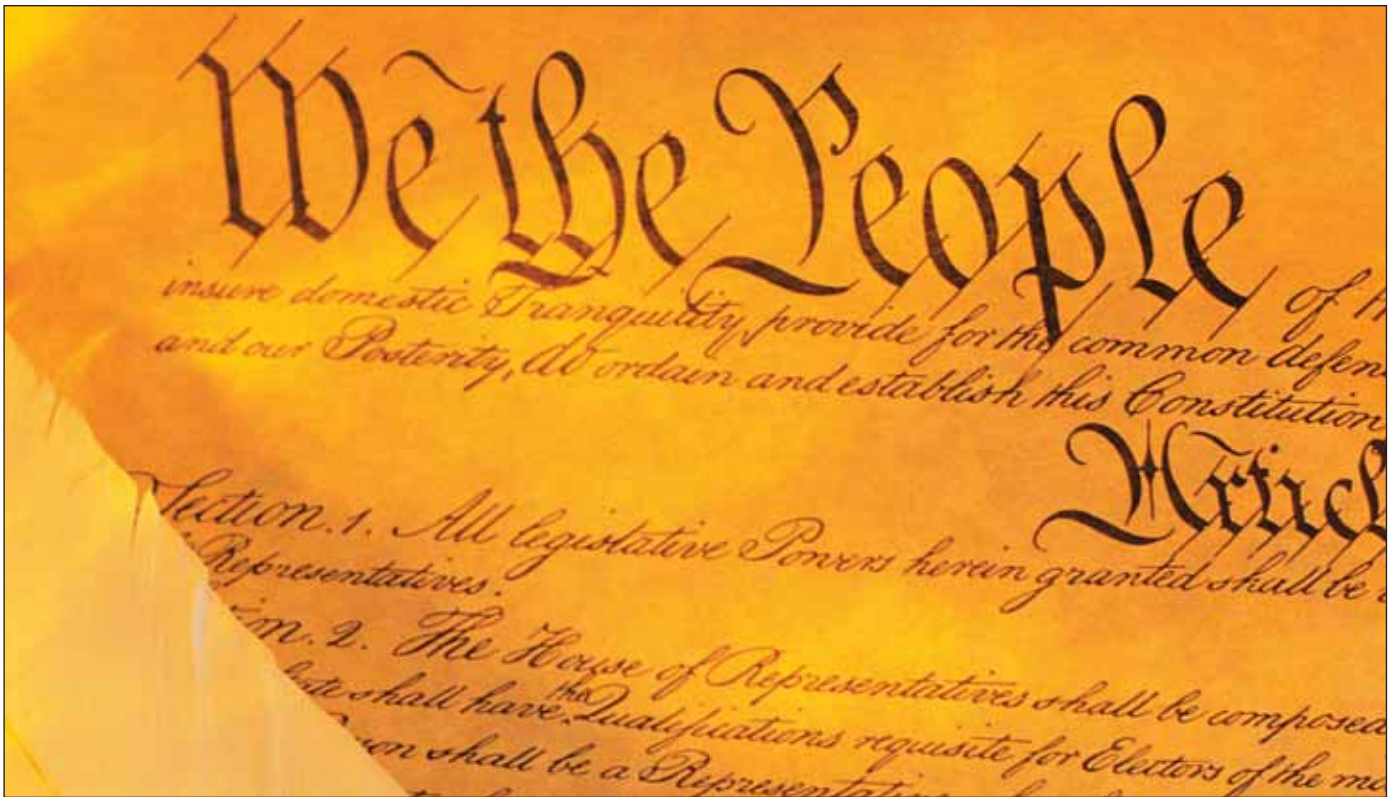 We the People of
insure domestic Tranquility, provide for the common defen
and our Posterity, do ordain and establish this Constitution
Articl
Section. 1. All legislative Powers herein granted shall be
Representatives.
2. The House of Representatives shall be composed
shall have the Qualifications requisite for Electors of the mo
shall be a Representative